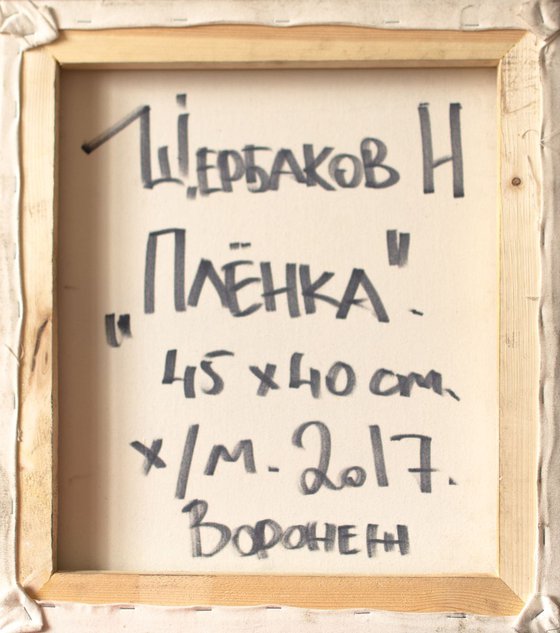 Щербаков Н
„Плёнка".
45 х 40 cm.
х/м. 2017.
Воронеж